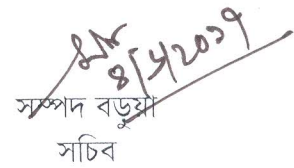 ৪/১/২০১৭
সম্পদ বড়ুয়া
সচিব